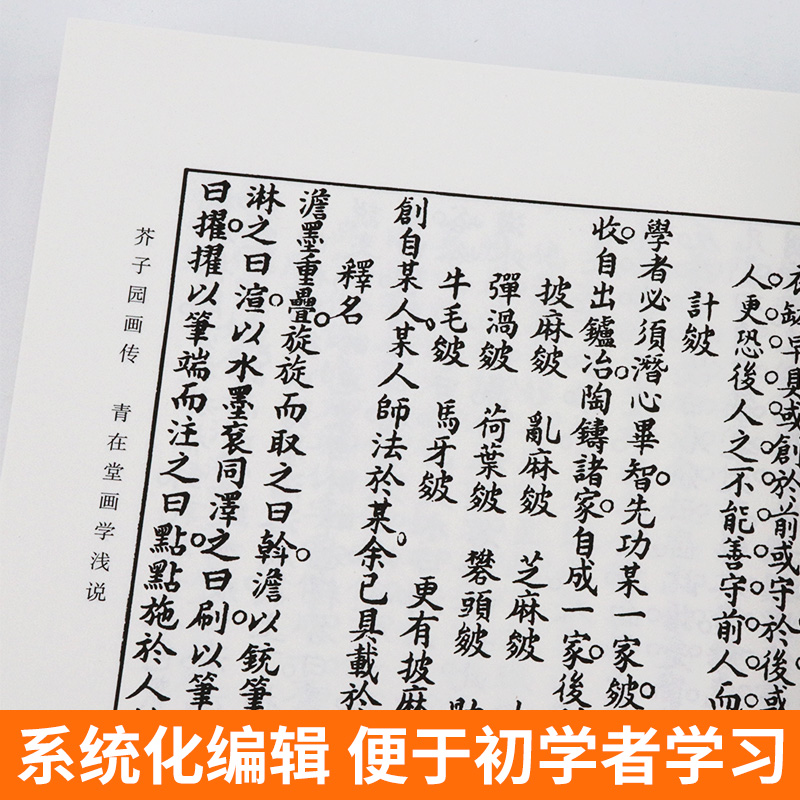 早具或創於前或守於後或
人更恐後人之不能善守前人而
計皴
學者必須潛心畢智先功某一家皴
收自出鑪冶陶鑄諸家自成一家後
披麻皴 亂麻皴 芝麻皴
彈渦皴 荷葉皴 礬頭皴
牛毛皴 馬牙皴 更有披麻
創自某人某人師法於某余已具載於
釋名
澹墨重疊旋旋而取之曰斡澹以銳筆
淋之曰渲以水墨衮同澤之曰刷以筆
曰擢擢以筆端而注之曰點點施於人
芥子园画传 青在堂画学浅说
系统化编辑 便于初学者学习